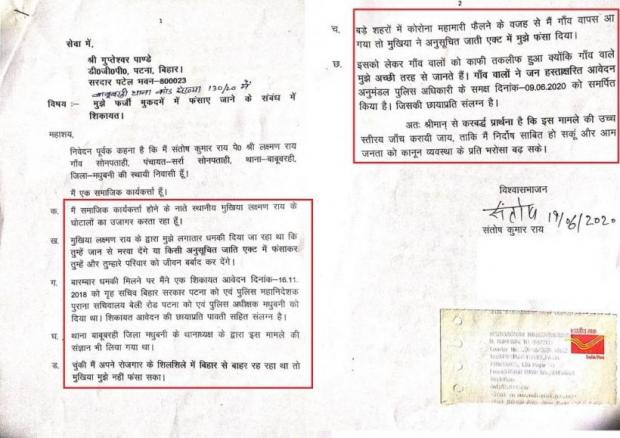 १
सेवा में,
श्री गुप्तेश्वर पाण्डे
डी०जी०पी०, पटना, बिहार।
सरदार पटेल भवन–800023
बाबूबरही थाना कांड संख्या 130/20 में
विषय :– मुझे फर्जी मुकदमें में फंसाए जाने के संबंध में
शिकायत।
महाशय,
निवेदन पूर्वक कहना है कि मैं संतोष कुमार राय पे० श्री लक्ष्मण राय
गाँव सोनपताही, पंचायत–सर्रा सोनपताही, थाना–बाबूबरही,
जिला–मधुबनी की स्थायी निवासी हूँ।
मैं एक समाजिक कार्यकर्त्ता हूँ।
क. मैं समाजिक कार्यकर्त्ता होने के नाते स्थानीय मुखिया लक्ष्मण राय के
घोटालों का उजागर करता रहा हूँ।
ख. मुखिया लक्ष्मण राय के द्वारा मुझे लगातार धमकी दिया जा रहा था कि
तुम्हे जान से मरवा देंगे या किसी अनुसूचित जाति एक्ट में फंसाकर
तुम्हें और तुम्हारे परिवार को जीवन बर्बाद कर देंगे।
ग. बारम्बार धमकी मिलने पर मैंने एक शिकायत आवेदन दिनांक–16.11.
2018 को गृह सचिव बिहार सरकार पटना को एवं पुलिस महानिदेशक
पुराना सचिवालय बेली रोड पटना को एवं पुलिस अधीक्षक मधुबनी को
दिया था। शिकायत आवेदन की छायाप्रति पावती सहित संलग्न है।
घ. थाना बाबूबरही जिला मधुबनी के थानाध्यक्ष के द्वारा इस मामले की
संज्ञान भी लिया गया था।
ड. चुंकी मैं अपने रोजगार के शिलशिले में बिहार से बाहर रह रहा था तो
मुखिया मुझे नहीं फंसा सका।
2
च. बड़े शहरों में कोरोना महामारी फैलने के वजह से मैं गाँव वापस आ
गया तो मुखिया ने अनुसूचित जाती एक्ट में मुझे फंसा दिया।
छ. इसको लेकर गाँव वालों को काफी तकलीफ हुआ क्योंकि गाँव वाले
मुझे अच्छी तरह से जानते हैं। गाँव वालों ने जन हस्ताक्षरित आवेदन
अनुमंडल पुलिस अधिकारी के समक्ष दिनांक–09.06.2020 को समर्पित
किया है। जिसकी छायाप्रति संलग्न है।
अतः श्रीमान् से करबर्द्ध प्रार्थना है कि इस मामले की उच्च
स्तरीय जाँच करायी जाय, ताकि मैं निर्दोष साबित हो सकूं और आम
जनता को कानून व्यवस्था के प्रति भरोसा बढ़ सके।
विश्वासभाजन
संतोष 19/06/2020
संतोष कुमार राय
भारतीय डाक
India Post